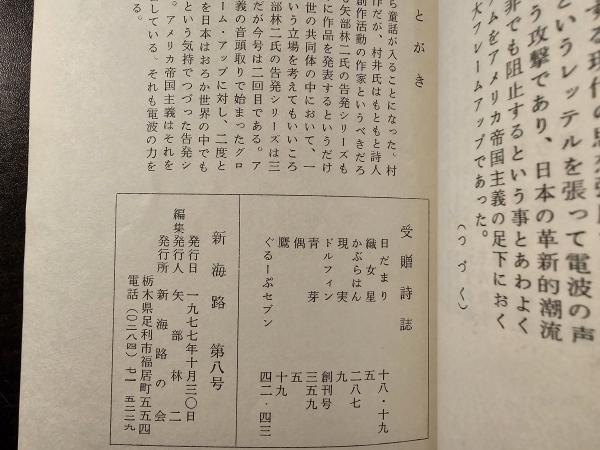 する現代の思
というレッテルを張って電波の声
う攻撃であり、日本の革新的潮流
非でも阻止するという事とあわよく
ムをアメリカ帝国主義の足下におく
大フレームアップであった。
（つづく）
とがき
ら童話が入ることになった。村
作だが、村井氏はもともと詩人
創作活動の作家というべきだろ
も矢部林二氏の告発シリーズも
に作品を発表するというだけ
世の共同体の中において、一
いう立場を考えてもいいころ
部林二氏の告発シリーズは三
だが今号は二回目である。ア
義の音頭取りで始まったグロ
ーム・アップに対し、二度と
を日本はおろか世界の中でも
という気持でつづった告発シ
。アメリカ帝国主義はそれを
している。それも電波の力を
る。
受贈詩誌
日だまり 十八・十九
織女星 五
かぶらはん 二八七
現実 九
ドルフィン 創刊号
青芽 三五九
偶 五
鷹 十九
ぐるーぷセブン 四二・四三
新海路 第八号
発行日 一九七七年十月三〇日
編集発行人 矢部林二
発行所 新海路の会
栃木県足利市福居町五五四
電話（〇二八四）七一 五二三九